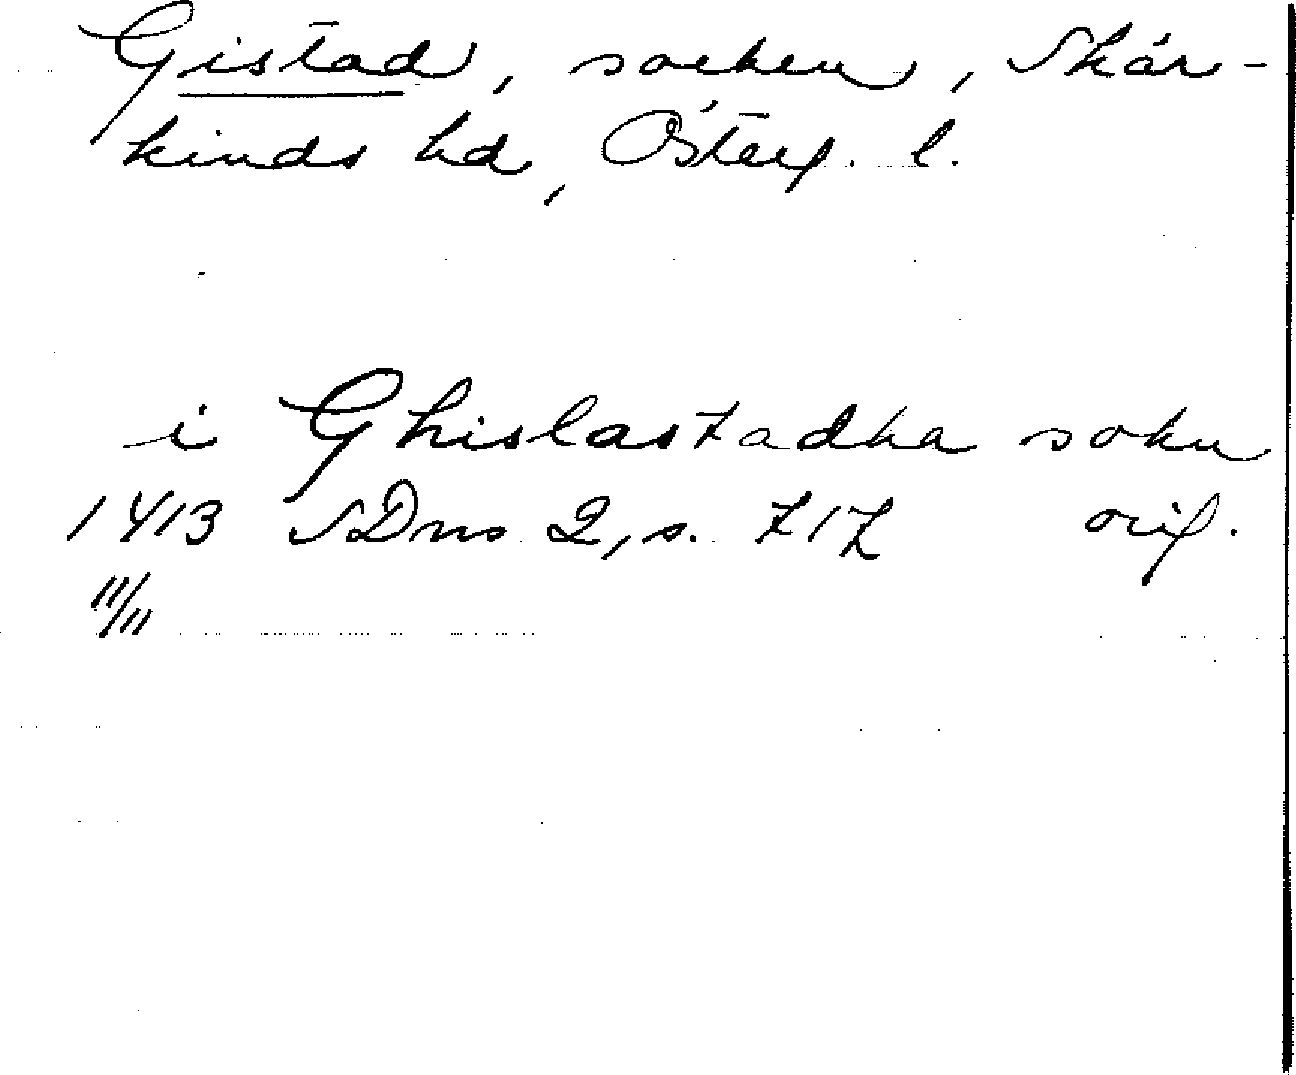 Gistad, socken, Skär-
kinds hd, Österg. l.
i Ghislastadha sokn
1413 SDns 2, s. 717 orig.
11/11